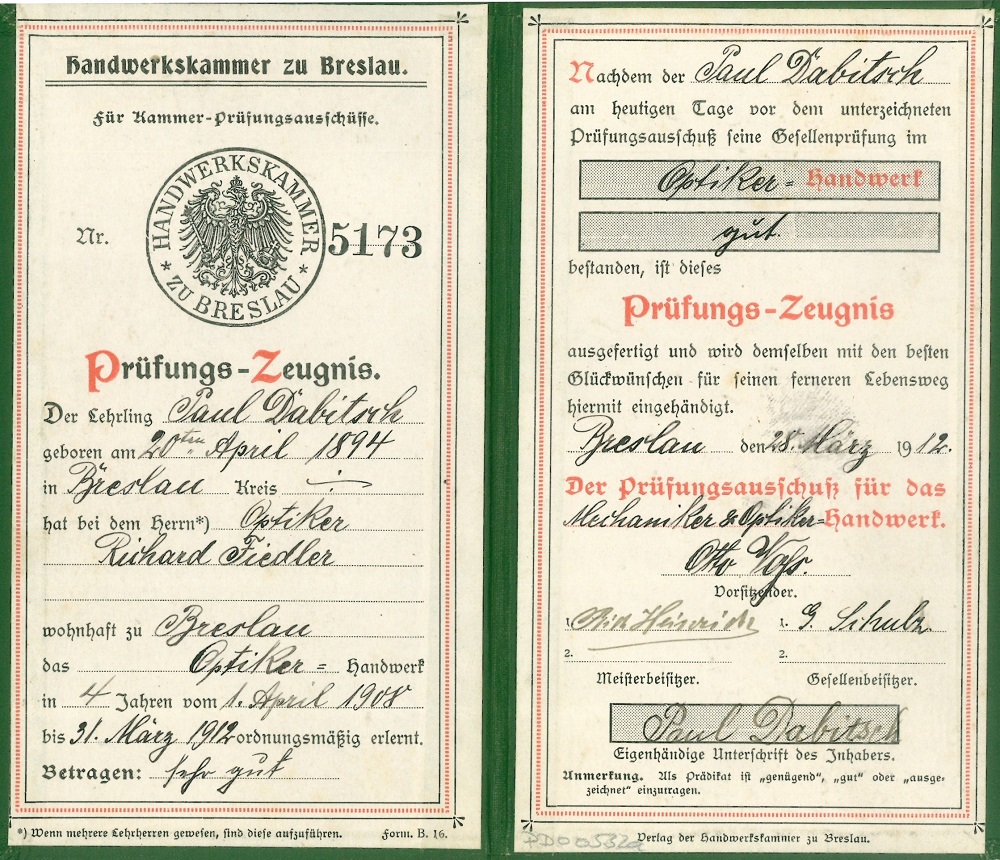 Handwerkskammer zu Breslau.
Für Kammer-Prüfungsausschüsse.
HANDWERKSKAMMER
* ZU BRESLAU *
Nr. 5173
Prüfungs-Zeugnis.
Der Lehrling Paul Dabitsch
geboren am 20ten April 1894
in Breslau Kreis
hat bei dem Herrn*) Optiker
Richard Fiedler
wohnhaft zu Breslau
das Optiker= Handwerk
in 4 Jahren vom 1. April 1908
bis 31. März 1912 ordnungsmäßig erlernt.
Betragen: sehr gut
*) Wenn mehrere Lehrherren gewesen, sind diese aufzuführen. Form. B. 16.
Nachdem der Paul Dabitsch
am heutigen Tage vor dem unterzeichneten
Prüfungsausschuß seine Gesellenprüfung im
Optiker= Handwerk
gut.
bestanden, ist dieses
Prüfungs-Zeugnis
ausgefertigt und wird demselben mit den besten
Glückwünschen für seinen ferneren Lebensweg
hiermit eingehändigt.
Breslau den 28. März 1912.
Der Prüfungsausschuß für das
Mechaniker & Optiker=Handwerk.
Otto
Vorsitzender.
1. Heinrich 1. G. Schulz
2. 2.
Meisterbeisitzer. Gesellenbeisitzer.
Paul Dabitsch
Eigenhändige Unterschrift des Inhabers.
Anmerkung. Als Prädikat ist „genügend“, „gut“ oder „ausge-
zeichnet“ einzutragen.
Verlag der Handwerkskammer zu Breslau.